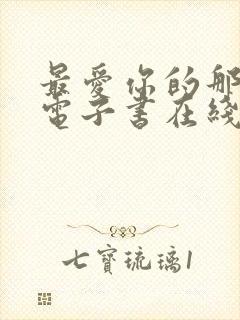 最愛你的那
電子書在綫
七寶琉璃1